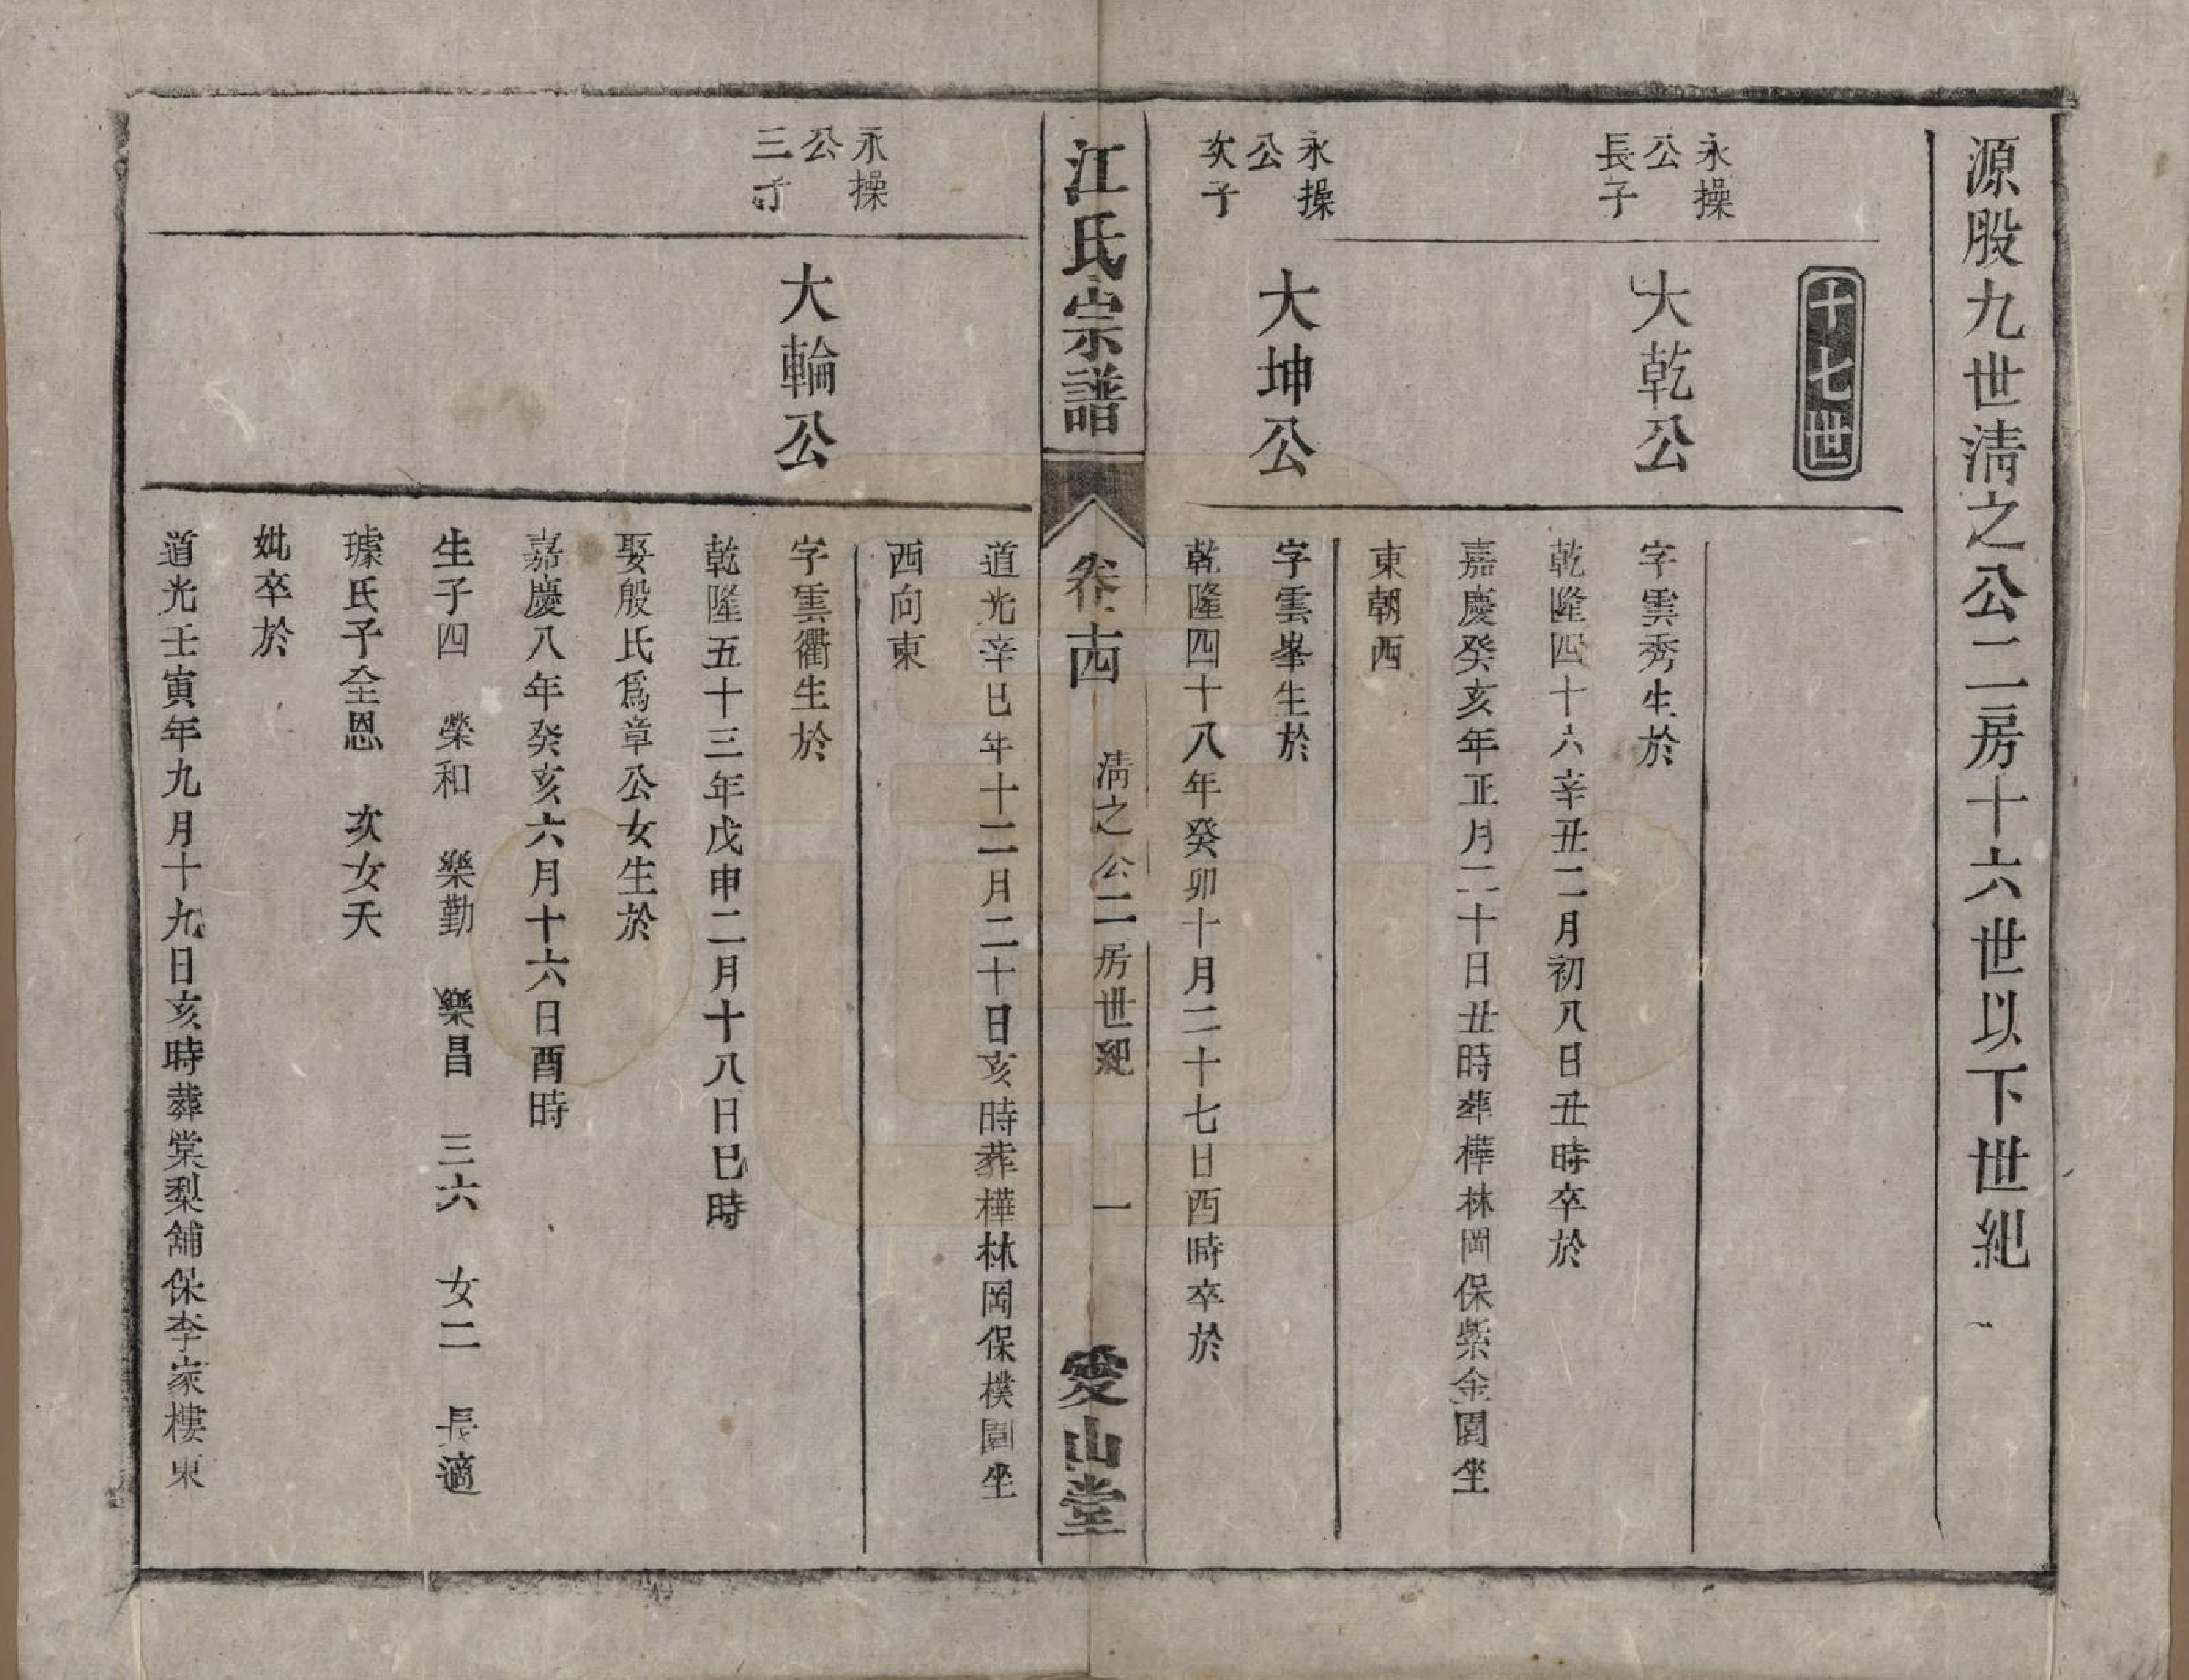 源股九世淸之公二房十六世以下世紀
十七世
永操
公
長子
大乾公
字雲秀生於
乾隆四十六辛丑二月初八日丑時卒於
嘉慶癸亥年正月二十日丑時葬樺林岡保紫金園坐
東朝西
永操
公
次子
大坤公
字雲峯生於
乾隆四十八年癸卯十月二十七日酉時卒於
江氏宗譜
卷十四
淸之公二房世紀
一
愛山堂
道光辛巳年十二月二十日亥時葬樺林岡保樸園坐
西向東
永操
公
三子
大輪公
字雲衢生於
乾隆五十三年戊申二月十八日巳時
娶殷氏爲章公女生於
嘉慶八年癸亥六月十六日酉時
生子四 榮和 樂勤 樂昌 三六 女二 長適
璩氏子全恩 次女夭
妣卒於
道光壬寅年九月十九日亥時葬棠梨舖保李家樓東